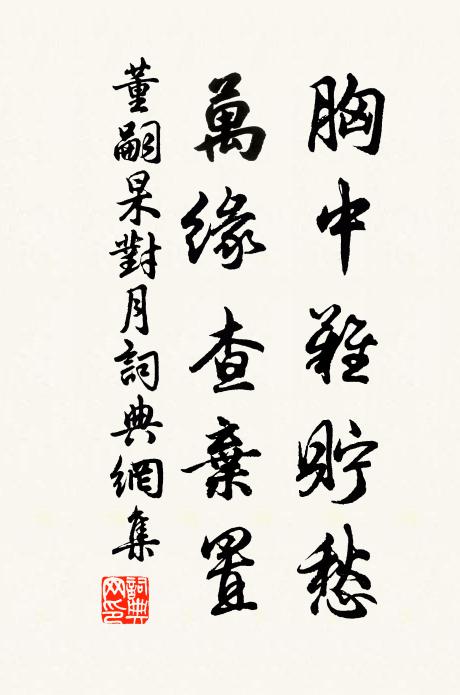 胸中難貯愁
萬緣查棄置
董嗣杲對月詞典網集
詞典网印